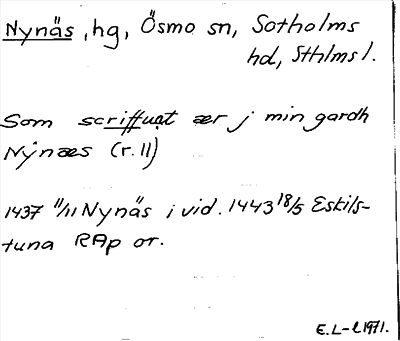 Nynäs, hg, Ösmo sn, Sotholms
hd, Sthlms l.
Som scriffuat ær j min gardh
Nynæs (r. 11)
1437 11/11 Nynäs i vid. 1443 18/5 Eskils-
tuna RAp or.
E. L-l 1971.